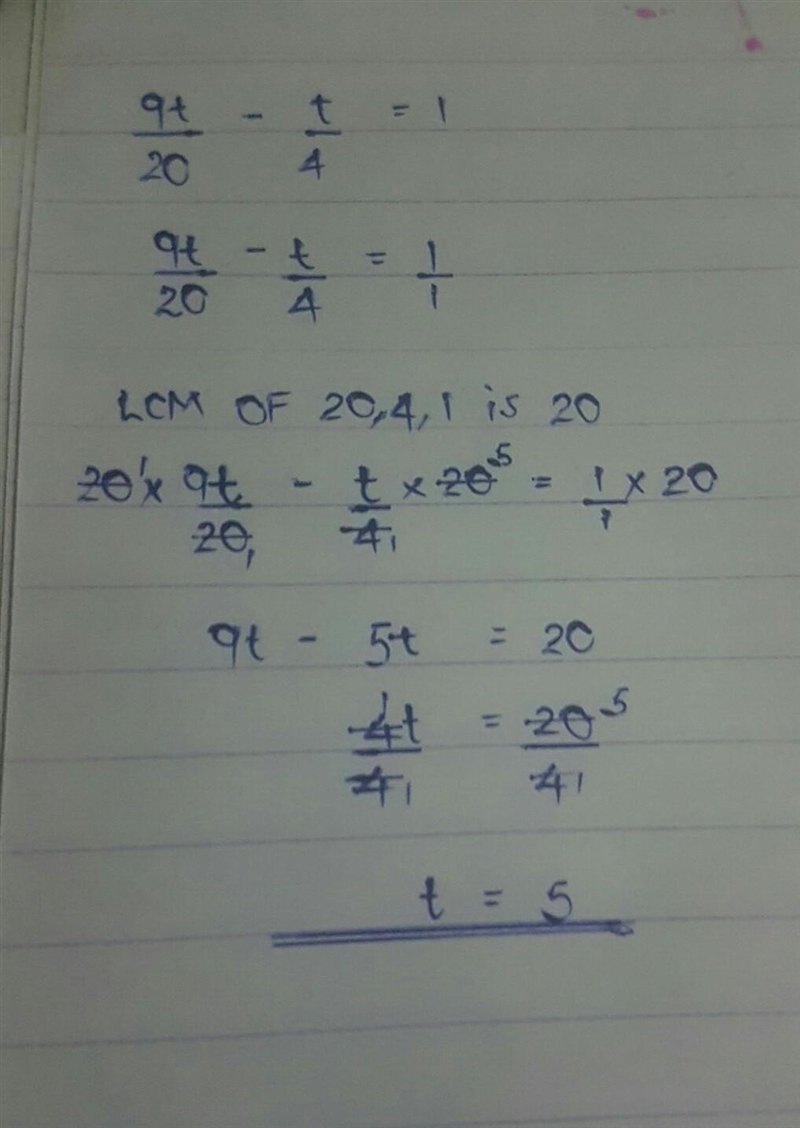 9t/20 - t/4 = 1
9t/20 - t/4 = 1/1
LCM OF 20,4,1 is 20
20 1 x 9t/20 1 - t/4 1 x 20 5 = 1/1 x 20
9t - 5t = 20
4 1 t/4 1 = 20 5/4 1
t = 5